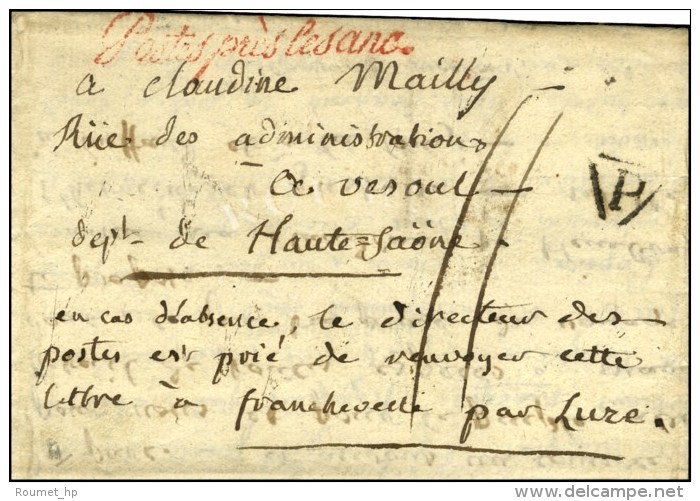 Postes près le sanc.
a claudine Mailly
Rüe des administrations
a vesoul
dept de Haute=saône.
P
en cas d'absence, le directeur des
postes est prié de renvoyer cette
lettre à franchevelle par Lure.
Roumet_hp
www.delcampe.net